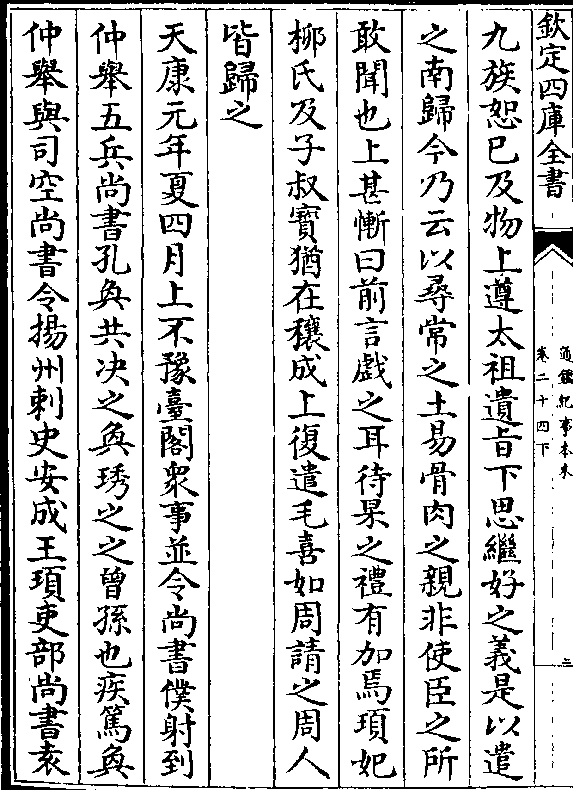 欽定四庫全書
通鑑紀事本末
卷二十四下
三
九族恕已及物上遵太祖遺旨下思繼好之義是以遣
之南歸今乃云以尋常之土易骨肉之親非使臣之所
敢聞也上甚慚曰前言戲之耳待杲之禮有加焉頊妃
栁氏及子叔寶猶在穰成上復遣毛喜如周請之周人
皆歸之
天康元年夏四月上不豫臺閣衆事並令尚書僕射到
仲舉五兵尚書孔奐共決之奐琇之之曾孫也疾篤奐
仲舉與司空尚書令揚州刺史安成王頊吏部尚書袁